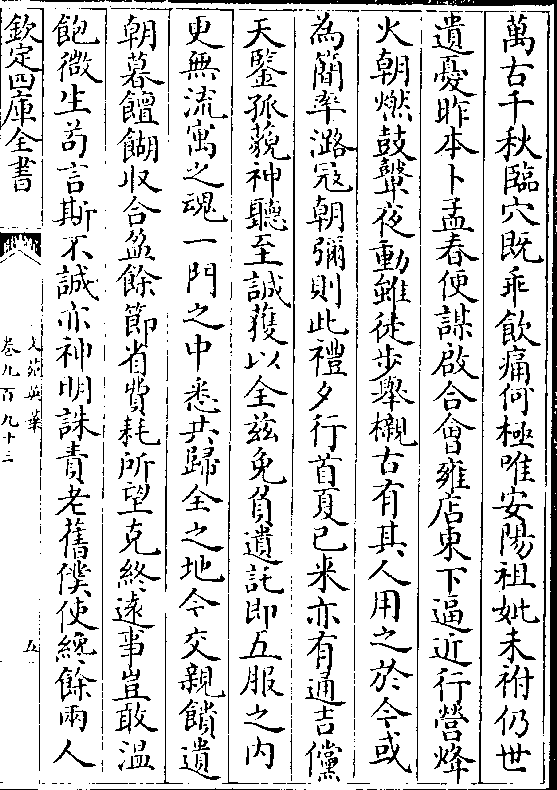 萬古千秋臨穴既乖飲痛何極唯安陽祖妣未祔仍世
遺憂昨本卜孟春便謀啟合會雍店東下逼近行營烽
火朝燃鼓鼙夜動雖徒步舉櫬古有其人用之於今或
為簡率潞冦朝彌則此禮夕行首夏已来亦有通吉儻
天鑒孤藐神聽至誠獲以全兹免負遺託即五服之内
更無流寓之魂一門之中悉共歸全之地今交親饋遺
朝暮饘餬収合盈餘節省費耗所望克終逺事豈敢温
飽微生茍言斯不誠亦神明誅責老舊僕使纔餘兩人
欽定四庫全書
文苑英華
卷九百九十三
五